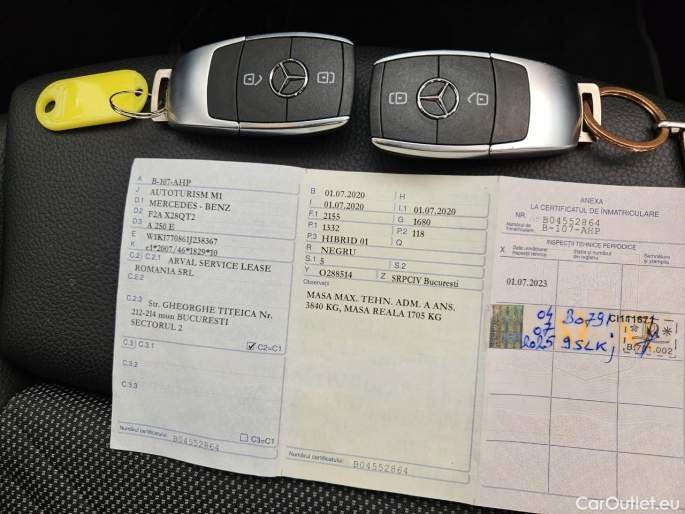 A B-107-AHP
J AUTOTURISM M1
D.1 MERCEDES - BENZ
D.2 F2A X28QT2
D.3 A 250 E
E W1K1770861J238367
K e1*2007/46*1829*10
C.2 C.2.1 ARVAL SERVICE LEASE
ROMANIA SRL
C.2.2
C.2.3 Str. GHEORGHE TITEICA Nr.
212-214 mun BUCURESTI
SECTORUL 2
C.3 C.3.1 C2=C1
C.3.2
C.3.3
C3=C1
Numărul certificatului: B04552864
B 01.07.2020 H
I 01.07.2020 I.1 01.07.2020
F.1 2155 G 1680
P.1 1332 P.2 118
P.3 HIBRID 01 Q
R NEGRU
S.1 5 S.2
Y O288514 Z SRPCIV Bucuresti
Observații
MASA MAX. TEHN. ADM. A ANS.
3840 KG, MASA REALA 1705 KG
Numărul certificatului: B04552864
ANEXA
LA CERTIFICATUL DE ÎNMATRICULARE
NR. B04552864
Numărul de înmatriculare: B-107-AHP
INSPECȚII TEHNICE PERIODICE
X Data următoarei inspecții tehnice Seria și numărul din registru Semnătura și ștampila
01.07.2023
04 B079
07
2025
CarOutlet.eu